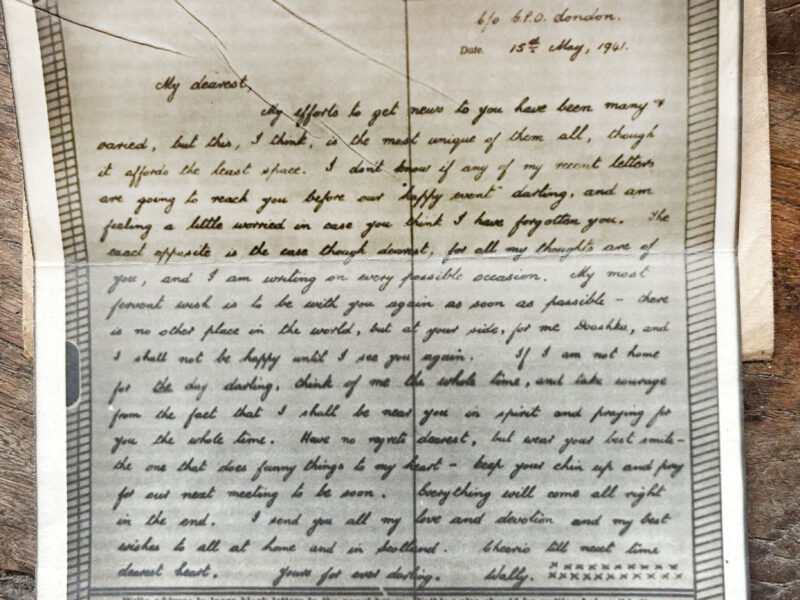 c/o G.P.O. London.
Date. 15th May, 1941.
My dearest,
My efforts to get news to you have been many +
varied, but this, I think, is the most unique of them all, though
it affords the least space. I don't know if any of my recent letters
are going to reach you before our "happy event" darling, and am
feeling a little worried in case you think I have forgotten you. The
exact opposite is the case though dearest, for all my thoughts are of
you, and I am writing on every possible occasion. My most
fervent wish is to be with you again as soon as possible - there
is no other place in the world, but at your side, for me Dooshka, and
I shall not be happy until I see you again. If I am not home
for the day darling, think of me the whole time, and take courage
from the fact that I shall be near you in spirit and praying for
you the whole time. Have no regrets dearest, but wear your best smile -
the one that does funny things to my heart - keep your chin up and pray
for our next meeting to be soon. Everything will come all right
in the end. I send you all my love and devotion and my best
wishes to all at home and in Scotland. Cheerio till next time
dearest heart. Yours for ever darling. Wally. xxxxxxxxxx
xxxxxxxxxx